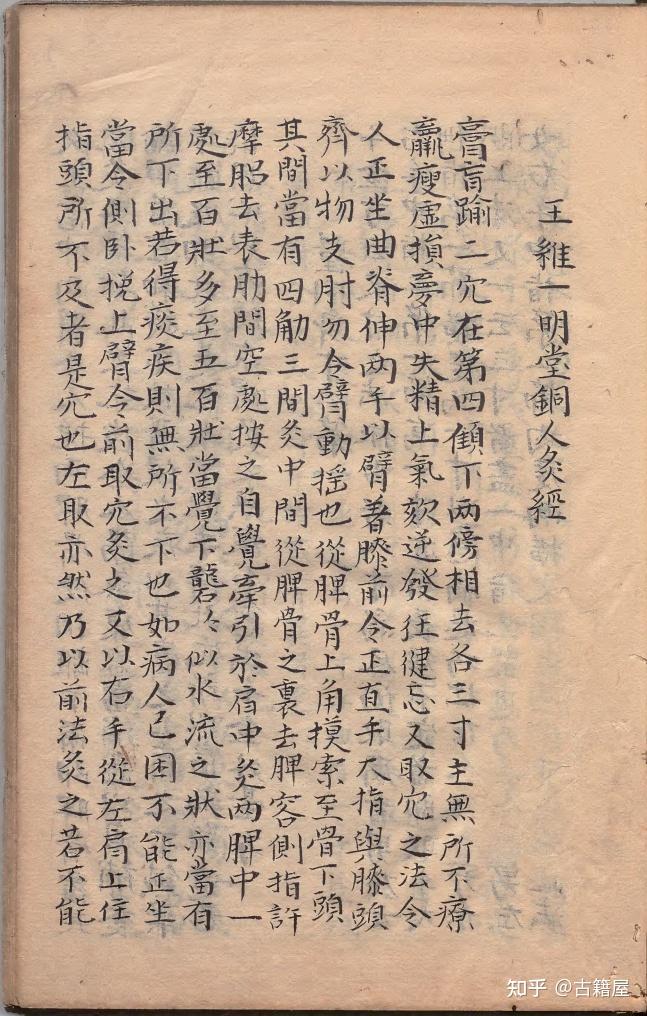 王維一明堂銅人灸經
膏肓踰二穴在第四顀下兩傍相去各三寸主無所不療
羸瘦虛損夢中失精上氣欬逆發狂健忘又取穴之法令
人正坐曲脊伸两手以臂著膝前令正直手大指與膝頭
齊以物支肘勿令臂動揺也從胛骨上角摸索至骨下頭
其間當有四肋三間灸中間從胛骨之裏去胛容側指許
摩𦛗去表肋間空處按之自覺牽引於肩中灸两胛中一
處至百壯多至五百壯當覺下礲々似水流之狀亦當有
所下出若得痰疾則無所不下也如病人已困不能正坐
當令側卧挽上臂令前取穴灸之又以右手從左肩上住
指頭所不及者是穴也左取亦然乃以前法灸之若不能
知乎 @古籍屋